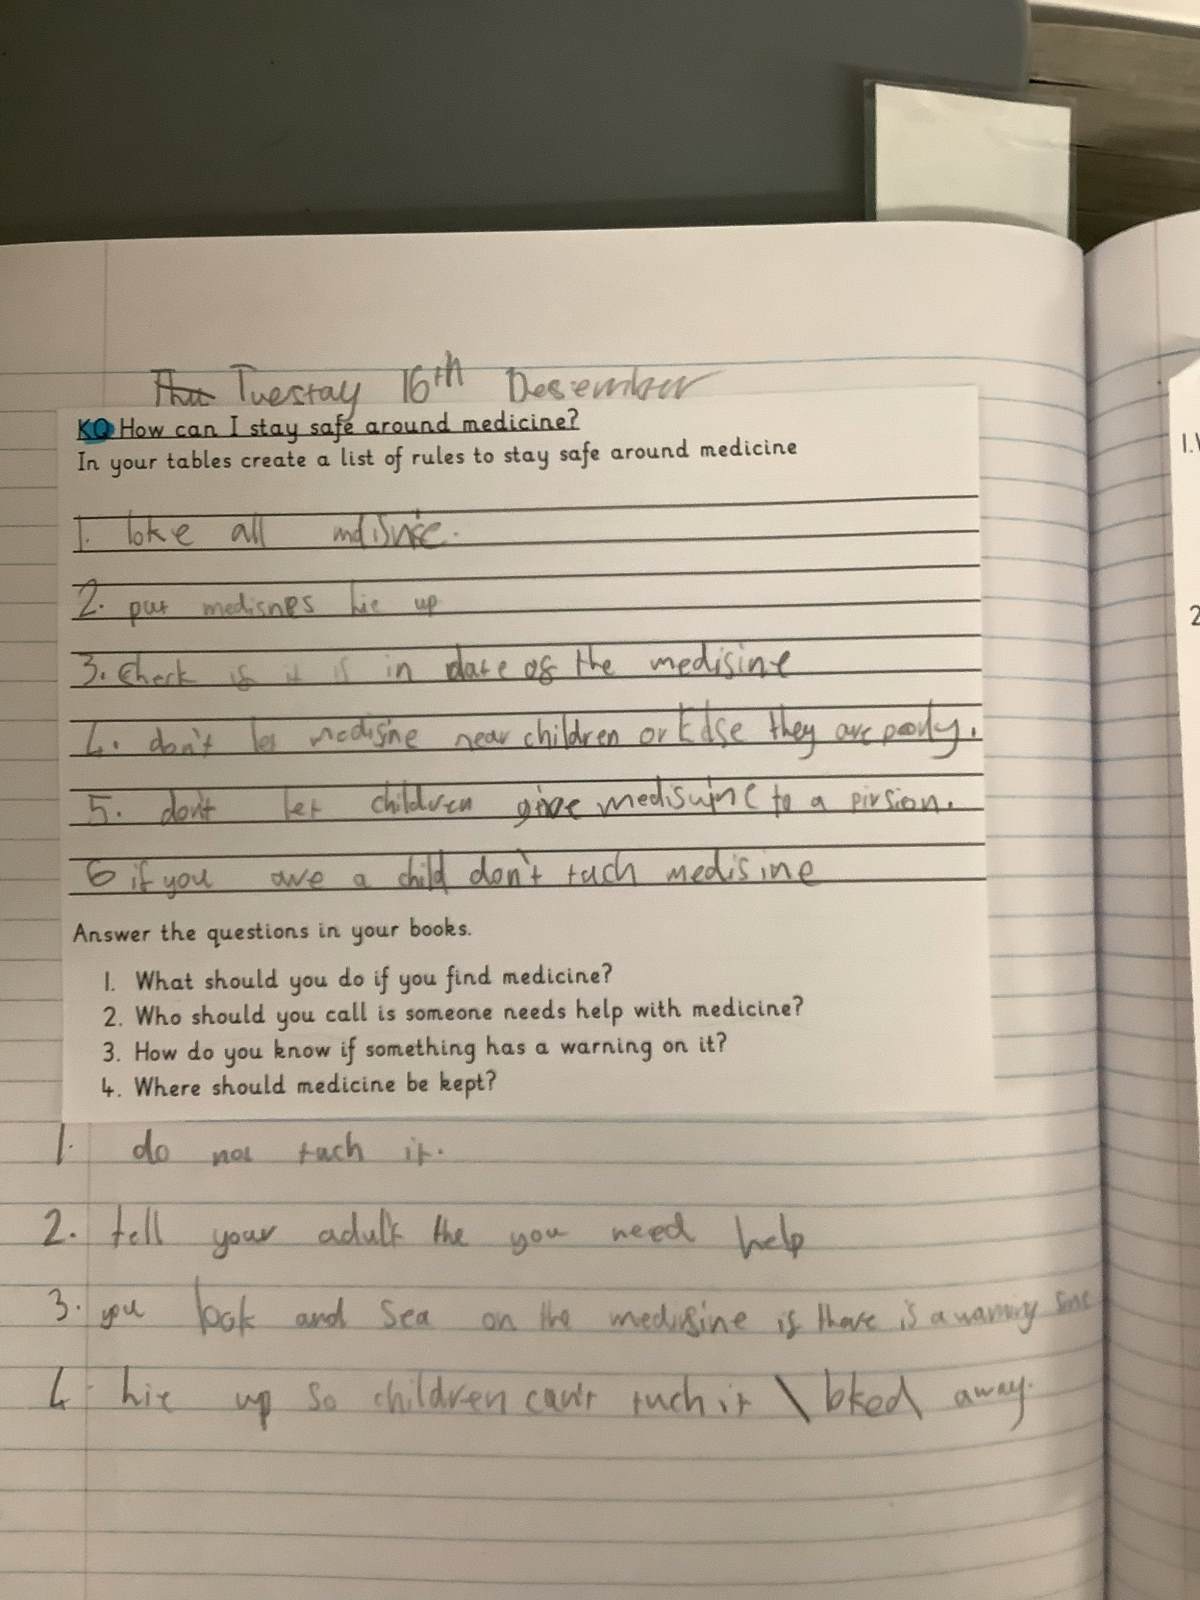 Thu Tuestay 16th Desember
KQ How can I stay safe around medicine?
In your tables create a list of rules to stay safe around medicine
1. loke all
2. put medisnes hie up
3. Check if it is in date of the medisine
4. don't let medisine near children or Edse they are poorly.
5. don't let children give to a pirsion.
6 if you are a child don't tuch medisine
Answer the questions in your books.
1. What should you do if you find medicine?
2. Who should you call is someone needs help with medicine?
3. How do you know if something has a warning on it?
4. Where should medicine be kept?
1. do not tuch it.
2. tell your adult the you need help
3. you look and sea on the medisine if thare is a warning
4 hie up so children can't tuch it \ loked away.
1.
2